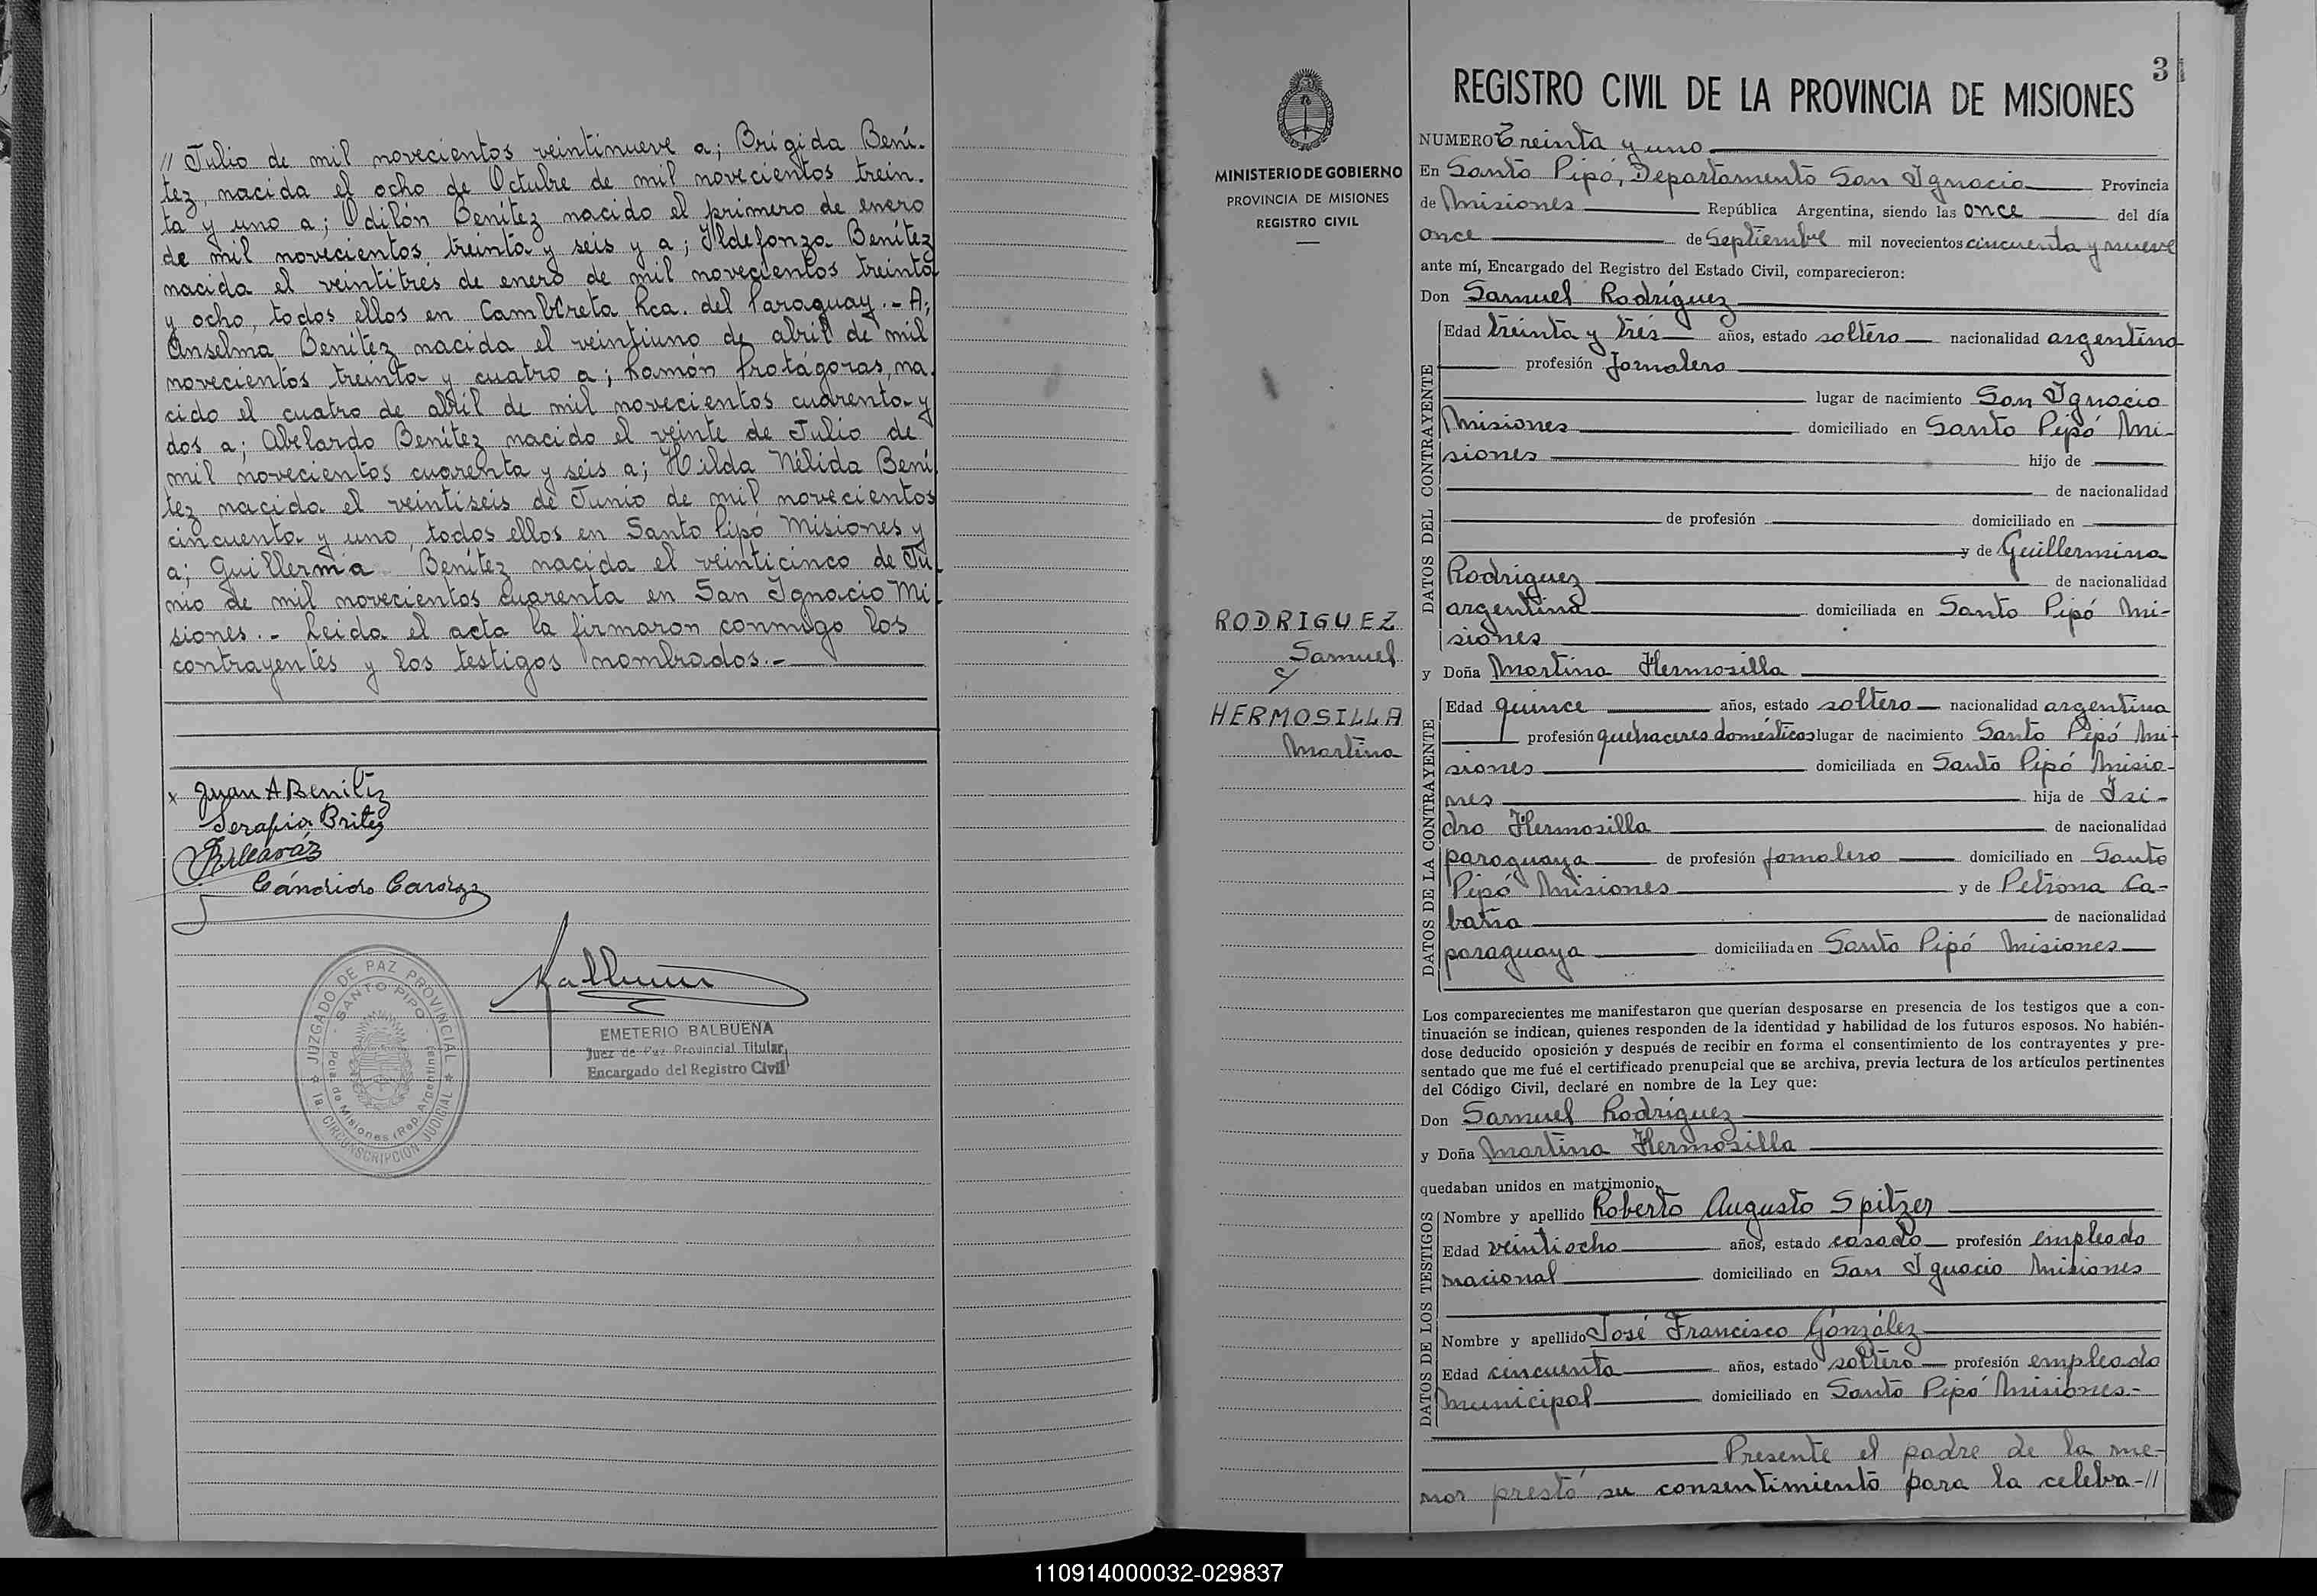 // Julio de mil novecientos veintinueve a; Brígida Bení-
tez, nacida el ocho de Octubre de mil novecientos trein-
ta y uno a; Odilón Benítez nacido el primero de enero
de mil novecientos treinta y seis y a; Ildefonza Benítez
nacida el veintitrés de enero de mil novecientos treinta
y ocho, todos ellos en Cambÿreta Rca. del Paraguay.- A;
Anselma Benítez nacida el veintiuno de abril de mil
novecientos treinta y cuatro a; Ramón Protágoras, na-
cido el cuatro de abril de mil novecientos cuarenta y
dos a; Abelardo Benítez nacido el veinte de Julio de
mil novecientos cuarenta y seis a; Hilda Nélida Bení-
tez nacida el veintiseis de Junio de mil novecientos
cincuenta y uno, todos ellos en Santo Pipó Misiones y
a; Guillerma Benítez nacida el veinticinco de Ju-
nio de mil novecientos cuarenta en San Ignacio Mi-
siones.- Leida el acta la firmaron conmigo los
contrayentes y los testigos nombrados.-
x Juan A Benitez
Serapia Britez
Cándido Cardozo
JUZGADO DE PAZ PROVINCIAL
SANTO PIPO
Pcia. de Misiones (Rep. Argentina)
1a. CIRCUNSCRIPCION JUDICIAL
EMETERIO BALBUENA
Juez de Paz Provincial Titular
Encargado del Registro Civil
3
MINISTERIO DE GOBIERNO
PROVINCIA DE MISIONES
REGISTRO CIVIL
RODRIGUEZ
Samuel
y
HERMOSILLA
Martina
REGISTRO CIVIL DE LA PROVINCIA DE MISIONES
NUMERO Treinta y uno
En Santo Pipó, Departamento San Ignacio Provincia
de Misiones República Argentina, siendo las once del día
once de Septiembre mil novecientos cincuenta y nueve
ante mí, Encargado del Registro del Estado Civil, comparecieron:
Don Samuel Rodríguez
DATOS DEL CONTRAYENTE
Edad treinta y tres años, estado soltero nacionalidad argentino
profesión Jornalero
lugar de nacimiento San Ignacio
Misiones domiciliado en Santo Pipó Mi-
siones hijo de
de nacionalidad
de profesión domiciliado en
y de Guillermina
Rodríguez de nacionalidad
argentina domiciliada en Santo Pipó Mi-
siones
y Doña Martina Hermosilla
DATOS DE LA CONTRAYENTE
Edad quince años, estado soltera nacionalidad argentina
profesión quehaceres domésticos lugar de nacimiento Santo Pipó Mi-
siones domiciliada en Santo Pipó Misio-
nes hija de Isi-
dro Hermosilla de nacionalidad
paraguaya de profesión jornalero domiciliado en Santo
Pipó Misiones y de Petrona Ca-
baña de nacionalidad
paraguaya domiciliada en Santo Pipó Misiones
Los comparecientes me manifestaron que querían desposarse en presencia de los testigos que a con-
tinuación se indican, quienes responden de la identidad y habilidad de los futuros esposos. No habién-
dose deducido oposición y después de recibir en forma el consentimiento de los contrayentes y pre-
sentado que me fué el certificado prenupcial que se archiva, previa lectura de los artículos pertinentes
del Código Civil, declaré en nombre de la Ley que:
Don Samuel Rodríguez
y Doña Martina Hermosilla
quedaban unidos en matrimonio.
DATOS DE LOS TESTIGOS
Nombre y apellido Roberto Augusto Spitzer
Edad veintiocho años, estado casado profesión empleado
nacional domiciliado en San Ignacio Misiones
Nombre y apellido José Francisco González
Edad cincuenta años, estado soltero profesión empleado
municipal domiciliado en Santo Pipó Misiones.-
Presente el padre de la me-
nor prestó su consentimiento para la celebra-//
110914000032-029837